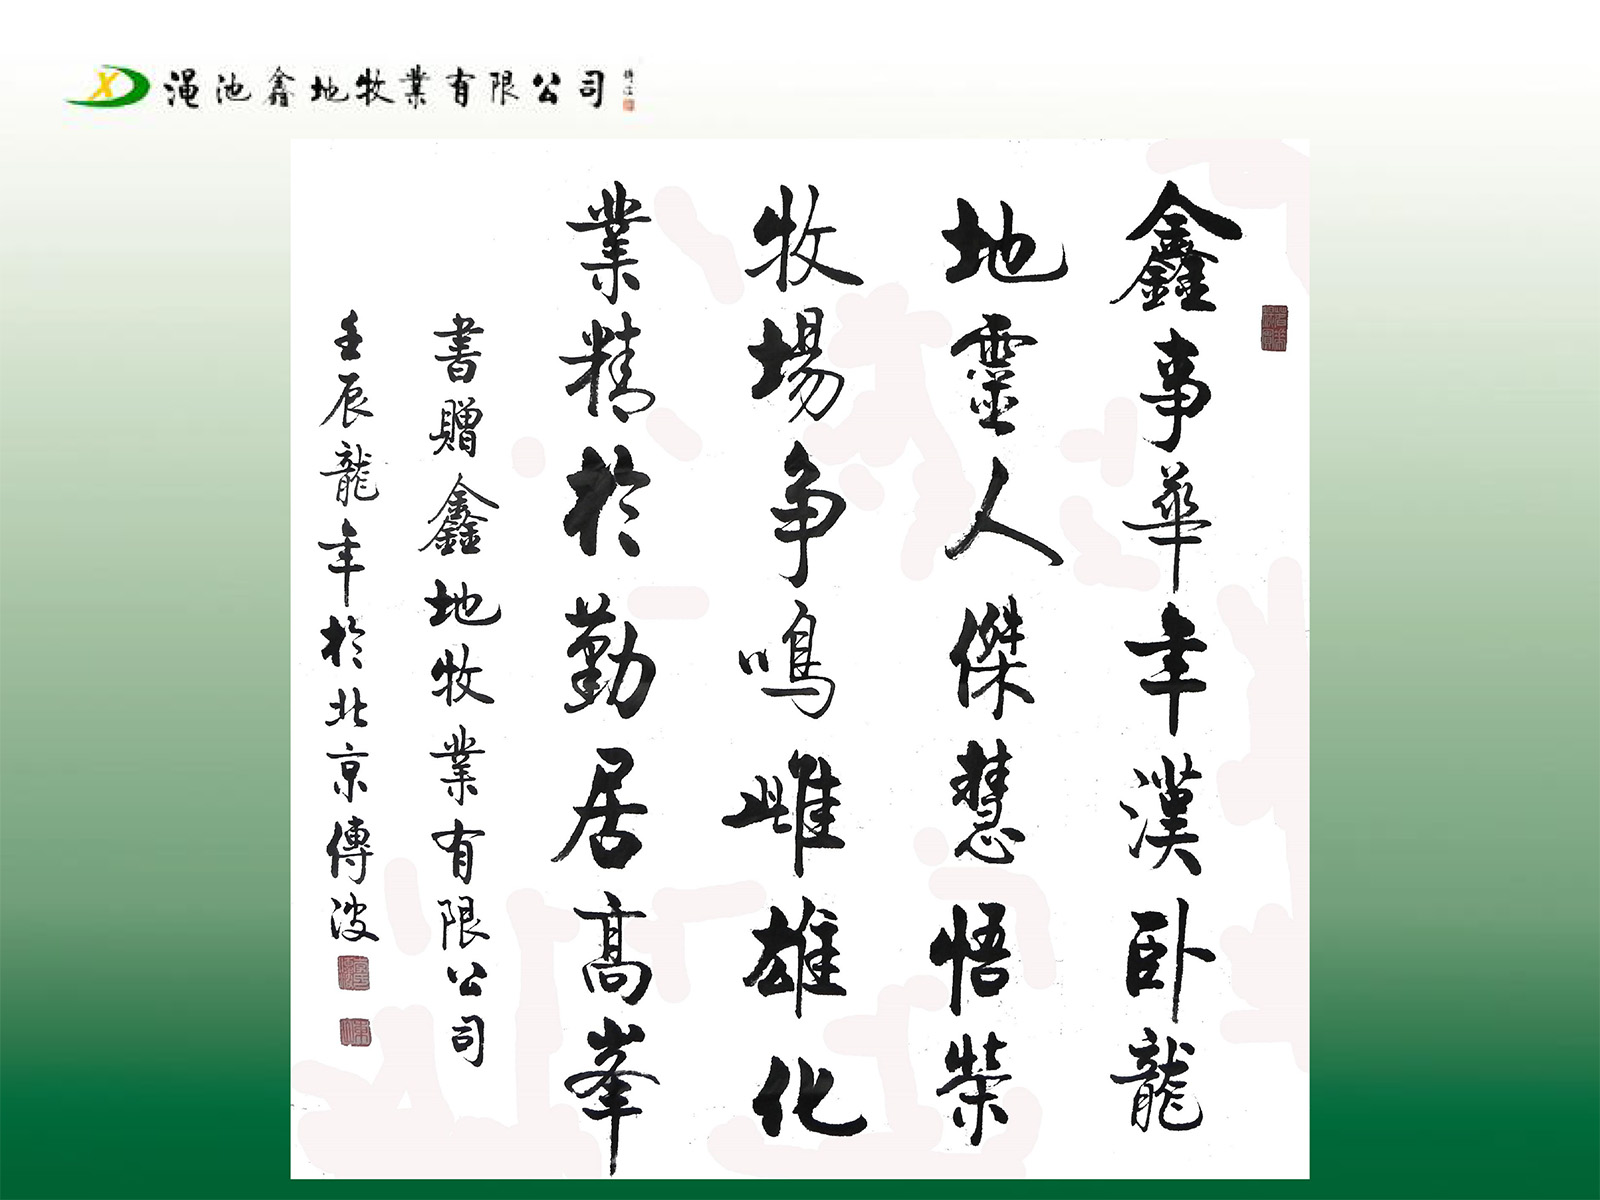 渑池鑫地牧業有限公司
鑫事華年漢卧龍
地靈人傑慧悟榮
牧場争鳴雌雄化
業精於勤居高峯
書贈鑫地牧業有限公司
壬辰龍年於北京傳波